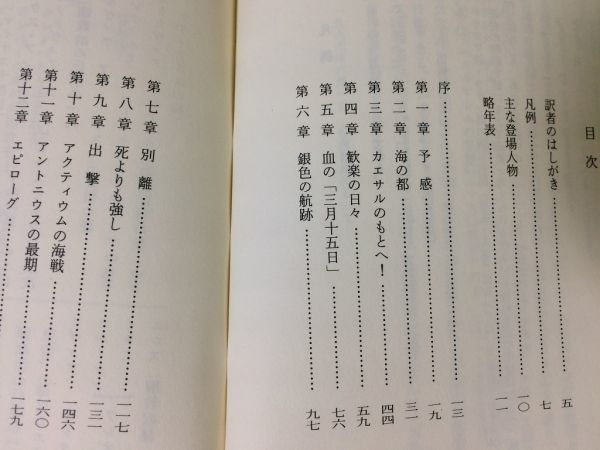 目次
訳者のはしがき……………五
凡例……………七
主な登場人物……………一〇
略年表……………一一
序……………一三
第一章 予感……………一九
第二章 海の都……………三一
第三章 カエサルのもとへ!……………四四
第四章 歓楽の日々……………五九
第五章 血の「三月十五日」……………七六
第六章 銀色の航跡……………九七
第七章 別離……………一一七
第八章 死よりも強し……………一三一
第九章 出撃……………一四六
第十章 アクティウムの海戦……………一六〇
第十一章 アントニウスの最期……………一七九
第十二章 エピローグ